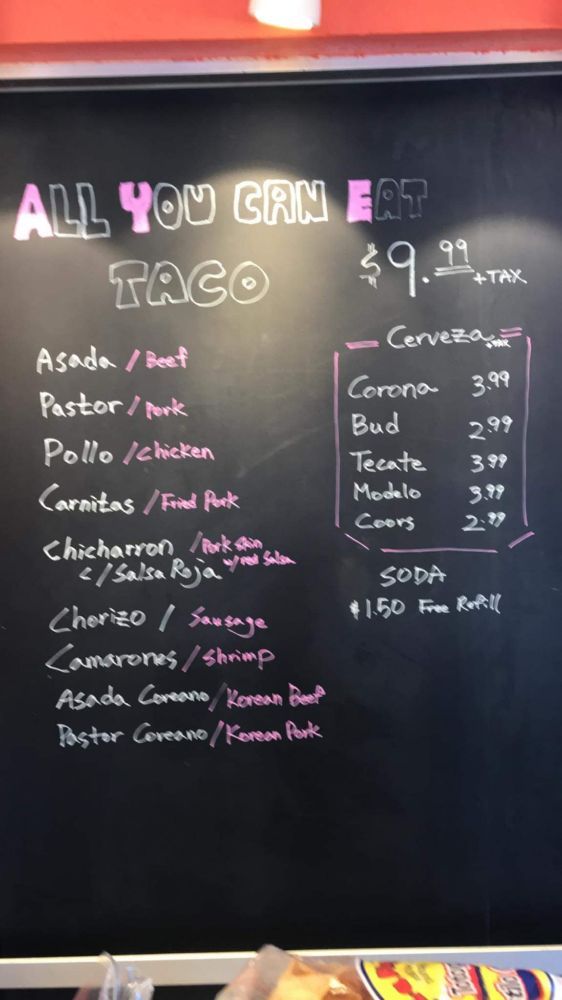 ALL YOU CAN EAT
TACO
$9.99 +TAX
Asada / Beef
Pastor / Pork
Pollo / chicken
Carnitas / Fried Pork
Chicharron / Pork skin
c/ Salsa Roja w/ red Salsa
Chorizo / Sausage
Camarones / shrimp
Asada Coreano / Korean Beef
Pastor Coreano / Korean Pork
Cerveza +TAX
Corona 3.99
Bud 2.99
Tecate 3.99
Modelo 3.99
Coors 2.99
SODA
$1.50 Free Refill